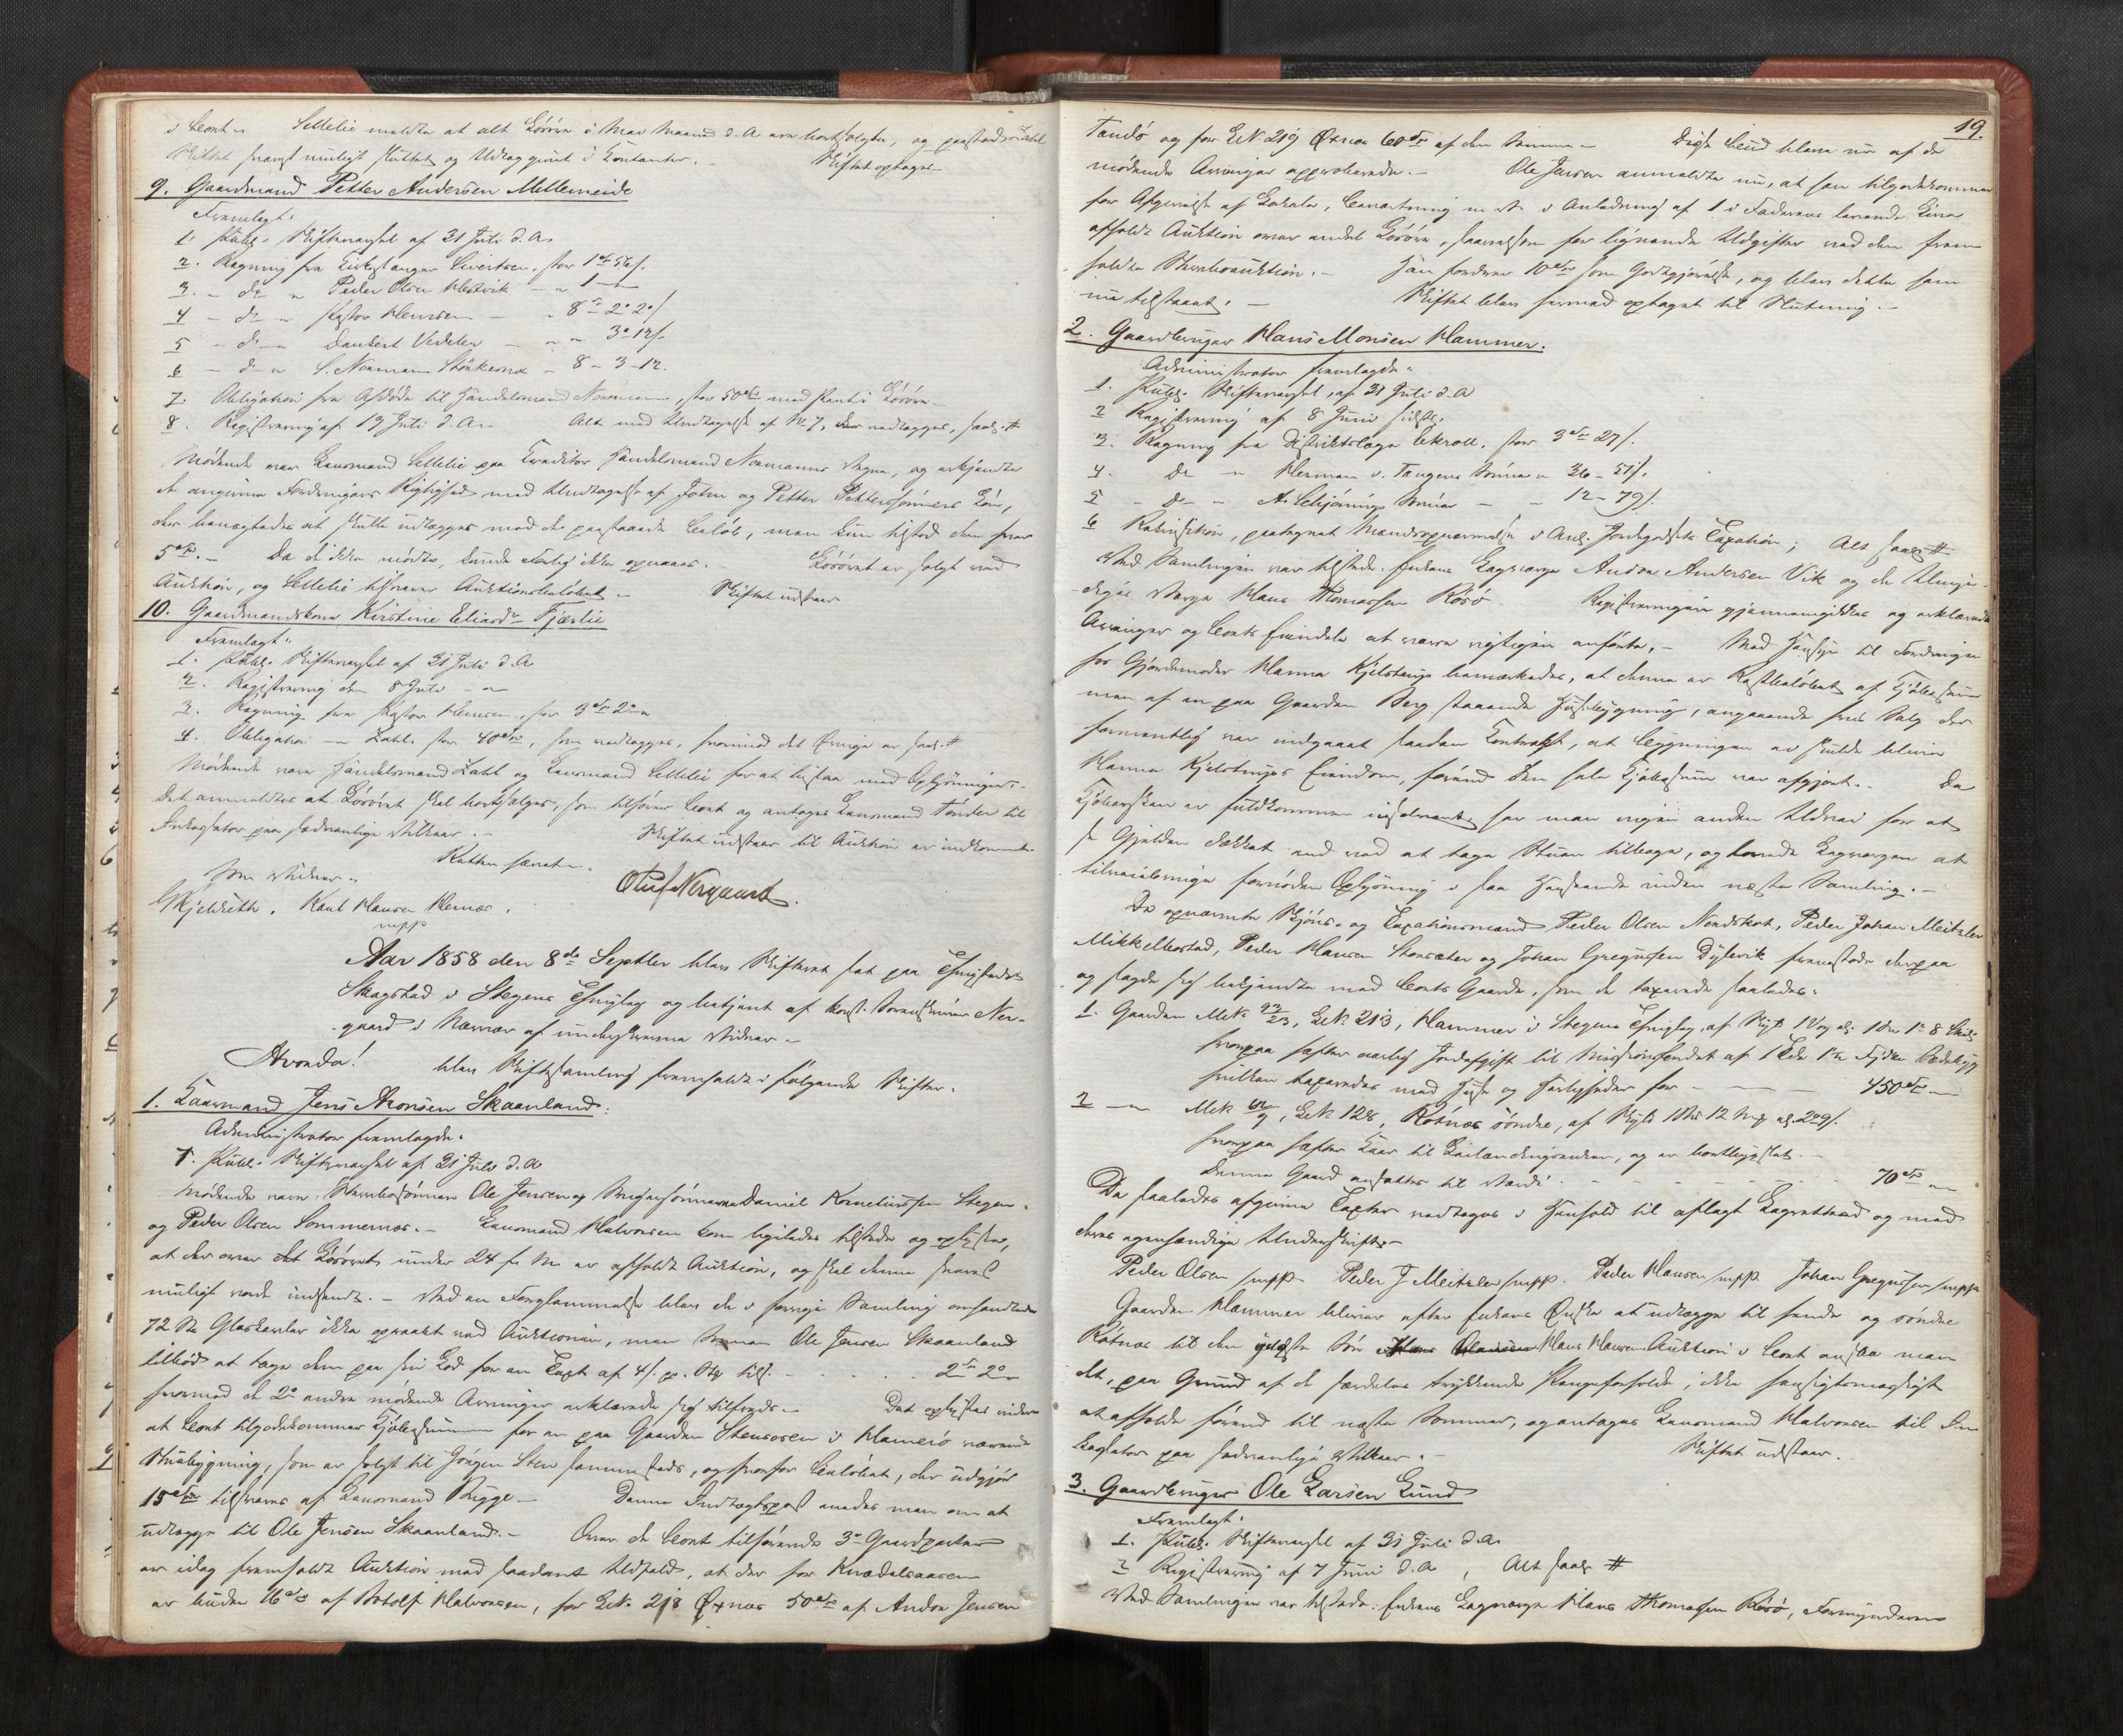 i Boet. Selletie meldte at alt Løsøre i Mai Maaned d. A. var bortsolgt, og paastod
Skiftet snarest muligt sluttet og Udlæg gjort i Kontanter. Skiftet optages
9. Gaardmand Petter Andersen Mellemeide
Fremlagt:
1. Publ. Skiftevarsel af 31 Juli d. A.
2. Regning fra Kirkesanger Sivertsen, stor
3. - do " Peder Olsen Hestvik - " 1
4 - do " Pastor Hemsen - " 8 - 2 - 2
5 - do " Danbert Vedeler - " " 3 12 s.
6 - do " S. Normann Stønkernæs - 8 - 3 - 12.
7. Obligation fra Afdøde til Handelsmand Normann, stor 50 Spd med Pant i Løsøre.
8. Registrering af 19 Juli d. A. Alt med Undtagelse af No 7, der vedlægges, saal. #
Mødende var Lensmand Selletie paa Kreditor Handelsmand Normanns Vegne, og erkjendte
de angivne Fordringers Rigtighed med Undtagelse af John og Petter Pettersønners Løn,
der benægtedes at skulle udlægges med det paastaaede Beløb, men kun tilstod dem hver
5 Spd. - Da de ikke mødte, kunde Forlig ikke opnaaes. - Løsøret er solgt ved
Auktion, og Selletie tilsvarer Auktionsbeløbet - Skiftet udstaar
10. Gaardmandskone Kirstine Eliasdr Fjærlie
Fremlagt:
1. Publ. Skiftevarsel af 31 Juli d. A.
2. Registrering den 8 Juli - "
3. Regning fra Pastor Hemsen, stor 3 2
4. Obligation - Zahl, stor 40 Spd, som vedlægges, hvorimod det Øvrige er saal. #
Mødende vare Handelsmand Zahl og Lensmand Selletie for at bistaa med Oplysninger.
Det anmeldtes at Løsøret skal bortsælges, som tilhører Boet og antoges Lensmand Tønder til
Inkassator paa sædvanlige Vilkaar. - Skiftet udstaar til Auktion er indkommet.
Retten hævet.
Som Vidner: Oluf Nergaard.
G Kjeldseth. Kant Hansen Hernes.
mpp
Aar 1858 den 8de Septbr blev Skifteret sat paa Thingstedet
Skagstad i Stegens Thinglag og betjent af konst. Sorenskriver Ner-
gaard i Nærvær af underskrevne Vidner -
Hvorda! blev Skiftesamling fremholdt i følgende Skifter.
1. Kaarmand Jens Aronsen Skaanland:
Administrator fremlagde:
1. Publ. Skiftevarsel af 31 Juli d. A.
Mødende vare: Sterbosønnen Ole Jensen og Svigersønnerne Daniel Korneliussen Stegen.
og Peder Olsen Sommernæs. - Lensmand Halvorsen kom ligeledes tilstede og oplyste,
at der over det Løsøret under 24 f. M. er afholdt Auktion, og skal denne snarest
muligt vorde indsendt. - Ved en Forglemmelse blev de i forrige Samling omhandlede
72 St. Glaskavler ikke opraabt ved Auktionen, men Sønnen Ole Jensen Skaanland
tilbød at tage dem paa sin Lod for en Taxt af 4 s. pr. Stk. tils. - - - - 2 2
hvormed de 2 andre mødende Arvinger erklærede sig tilfreds. - Det oplystes videre
at Boet tilgodekommer Kjøbesummen for en paa Gaarden Stensosen i Hamerø værende
Stuebygning, som er solgt til Jørgen Sten sammesteds, og hvorfor Beløbet, der udgjør
15 Spd tilsvares af Lensmand Rigge - Denne Indtægtspost enedes man om at
udlægge til Ole Jensen Skaanland. - Over de Boet tilhørende 3 Gaardparter
er idag fremholdt Auktion med saadant Udfald, at der for Knedalsaasen
er buden 16 Spd af Botolf Halvorsen, for LN. 218 Øxnæs 50 Spd af Andor Jensen
19.
Tandø og for LN 219 Øxnæs 60 Spd af den Samme - Disse Bud bleve nu af de
mødende Arvinger approberede. - Ole Jensen anmeldte nu, at han tilgodekommer
for Afgivelse af Lokale, Bevertning m. v. i Anledning af 1 i Faderens levende Live
afholdt Auktion over endel Løsøre, saavelsom for lignende Udgifter ved den frem-
holdte Sterboauktion. - Han fordrer 10 Spd som Godtgjørelse, og blev dette ham
nu tilstaaet. - Skiftet blev hermed optaget til Slutning. -
2. Gaardbruger Hans Monsen Hammer.
Administrator fremlagde:
1. Publ. Skiftevarsel, af 31 Juli d. A
2 Registrering af 8 Juni sidstl.
3. Regning fra Distriktslæge Ukroll. stor 3 27 s.
4. do " Herman v. Tangens Sønner " 36 - 51 s.
5 - do - " A. Schjønings Sønner - - 12 - 79 s.
6 Rekvisition, paategnet Mændsopnævnelse i Anl. Jordegodsets Taxation; Alt saal. #
Ved Samlingen var tilstede: Enkens Lagværge Andor Andersen Vik og de Umyn-
diges Værge Hans Thomassen Rösö. Registreringen gjennemgikkes og erklærede
Arvinger og Boets Eiendele at være rigtigen anførte. - Med Hensyn til Fordringen
hos Gjordemoder Hanna Kjelstrup bemærkedes, at denne er Restbeløbet af Kjøbesum-
men af en paa Gaarden Berg staaende Husebygning, angaaende hvis Salg der
formentlig var indgaaet saadan Kontrakt, at Bygningen ei skulde blive
Hanna Kjelstrups Eiendom, førend den hele Kjøbesum var afgjort. - Da
Kjøbersken er fuldkommen insolvent, har man ingen anden Udvei for at
faa Gjelden dækket end ved at tage Stuen tilbage, og lovede Lagværgen at
tilveiebringe fornøden Oplysning i saa Henseende inden næste Samling. -
De opnævnte Skjøns- og Taxationsmænd Peder Olsen Nordskot, Peder Johan Meitzler
Mikkelbostad, Peder Hansen Storsæter og Johan Gregussen Dypvik fremstode derpaa
og sagde sig bekjendte med Boets Gaarde, som de taxerede saaledes:
1. Gaarden MtN 23, LN. 213, Hammer i Stegens Thinglag, af Skyld 1 Vog
hvorpaa hæfter aarlig Jordafgift til Missionsfondet af
hvilken taxeredes med Huse og Herligheder for - - - - 450 Spd -
2 - MtN 9, LN 128, Rötnæs söndre, af Skyld
hvorpaa hæfter Kaar til Leilændingsenken, og er bortbygslet. -
Denne Gaard ansattes til Værdi - - - - - - 70 Spd -
De saaledes afgivne Taxter vedtoges i Henhold til aflagt Lagrettesed og med
deres egenhændige Underskrifter -
Peder Olsen mpp. Peder J Meitzler mpp. Peder Hansen mpp. Johan Gregussen mpp
Gaarden Hammer bliver efter Enkens Ønske at udlægge til hende og söndre
Rötnæs til den yngste Søn Hans Hansen. Auktion i Boet ansaa man
det, paa Grund af de særdeles trykkende Pengeforholde, ikke hensigtsmæssigt
at afholde førend til næste Sommer, og antoges Lensmand Halvorsen til In-
kassator paa sædvanlige Vilkaar. - Skiftet udstaar.
3. Gaardbruger Ole Larsen Lund
Fremlagt:
1. Publ. Skiftevarsel af 31 Juli d. A.
2 Registrering af 7 Juni d. A. , Alt saal. #
Ved Samlingen var tilstede: Enkens Lagværge Hans Thomassen Rösö, Formynderen